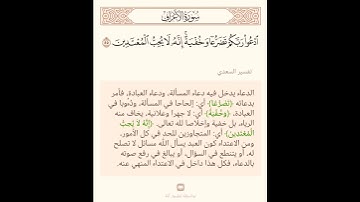 سورة الأعراف
ادْعُوا رَبَّكُمْ تَضَرُّعًا وَخُفْيَةً إِنَّهُ لَا يُحِبُّ الْمُعْتَدِينَ
تفسير السعدي
الدعاء يدخل فيه دعاء المسألة، ودعاء العبادة، فأمر
بدعائه {تَضَرُّعًا} أي: إلحاحا في المسألة، ودُءُوبا في
العبادة، {وَخُفْيَةً} أي: لا جهرا وعلانية، يخاف منه
الرياء، بل خفية وإخلاصا لله تعالى. {إِنَّهُ لَا يُحِبُّ
الْمُعْتَدِينَ} أي: المتجاوزين للحد في كل الأمور،
ومن الاعتداء كون العبد يسأل الله مسائل لا تصلح
له، أو يتنطع في السؤال، أو يبالغ في رفع صوته
بالدعاء، فكل هذا داخل في الاعتداء المنهي عنه.